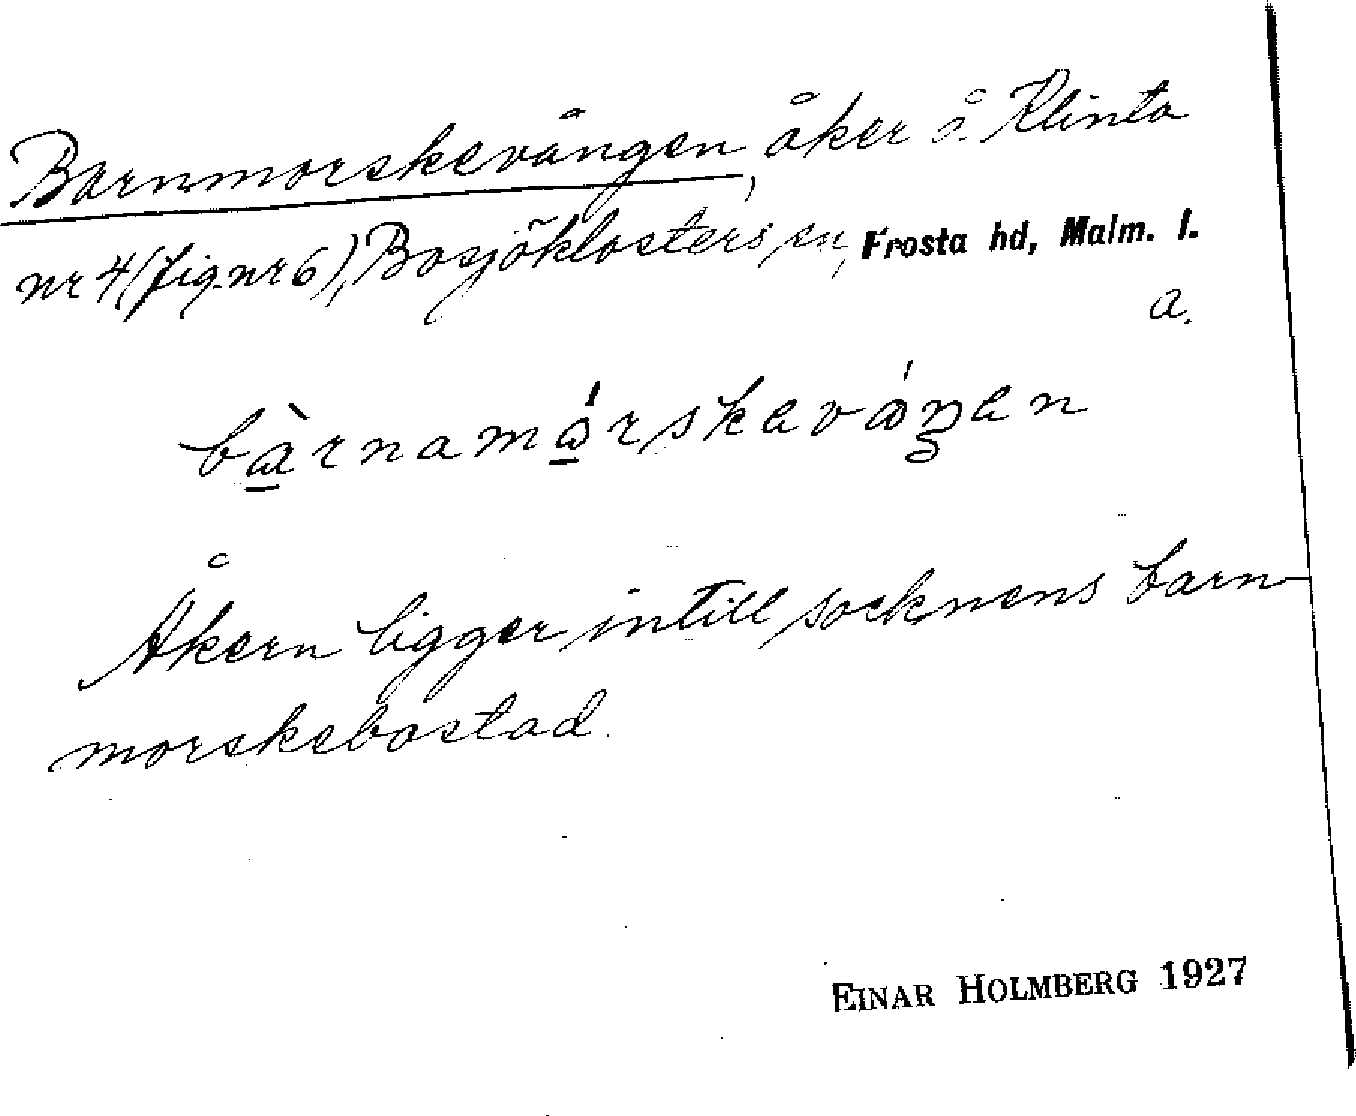 Barnmorskevången, åker å Klinta
nr 4 (fig. nr 6), Bosjöklosters sn, Frosta hd, Malm. l.
a.
bàrnamárskaváŋan
Åkern ligger intill socknens barn-
morskebostad.
EINAR HOLMBERG 1927